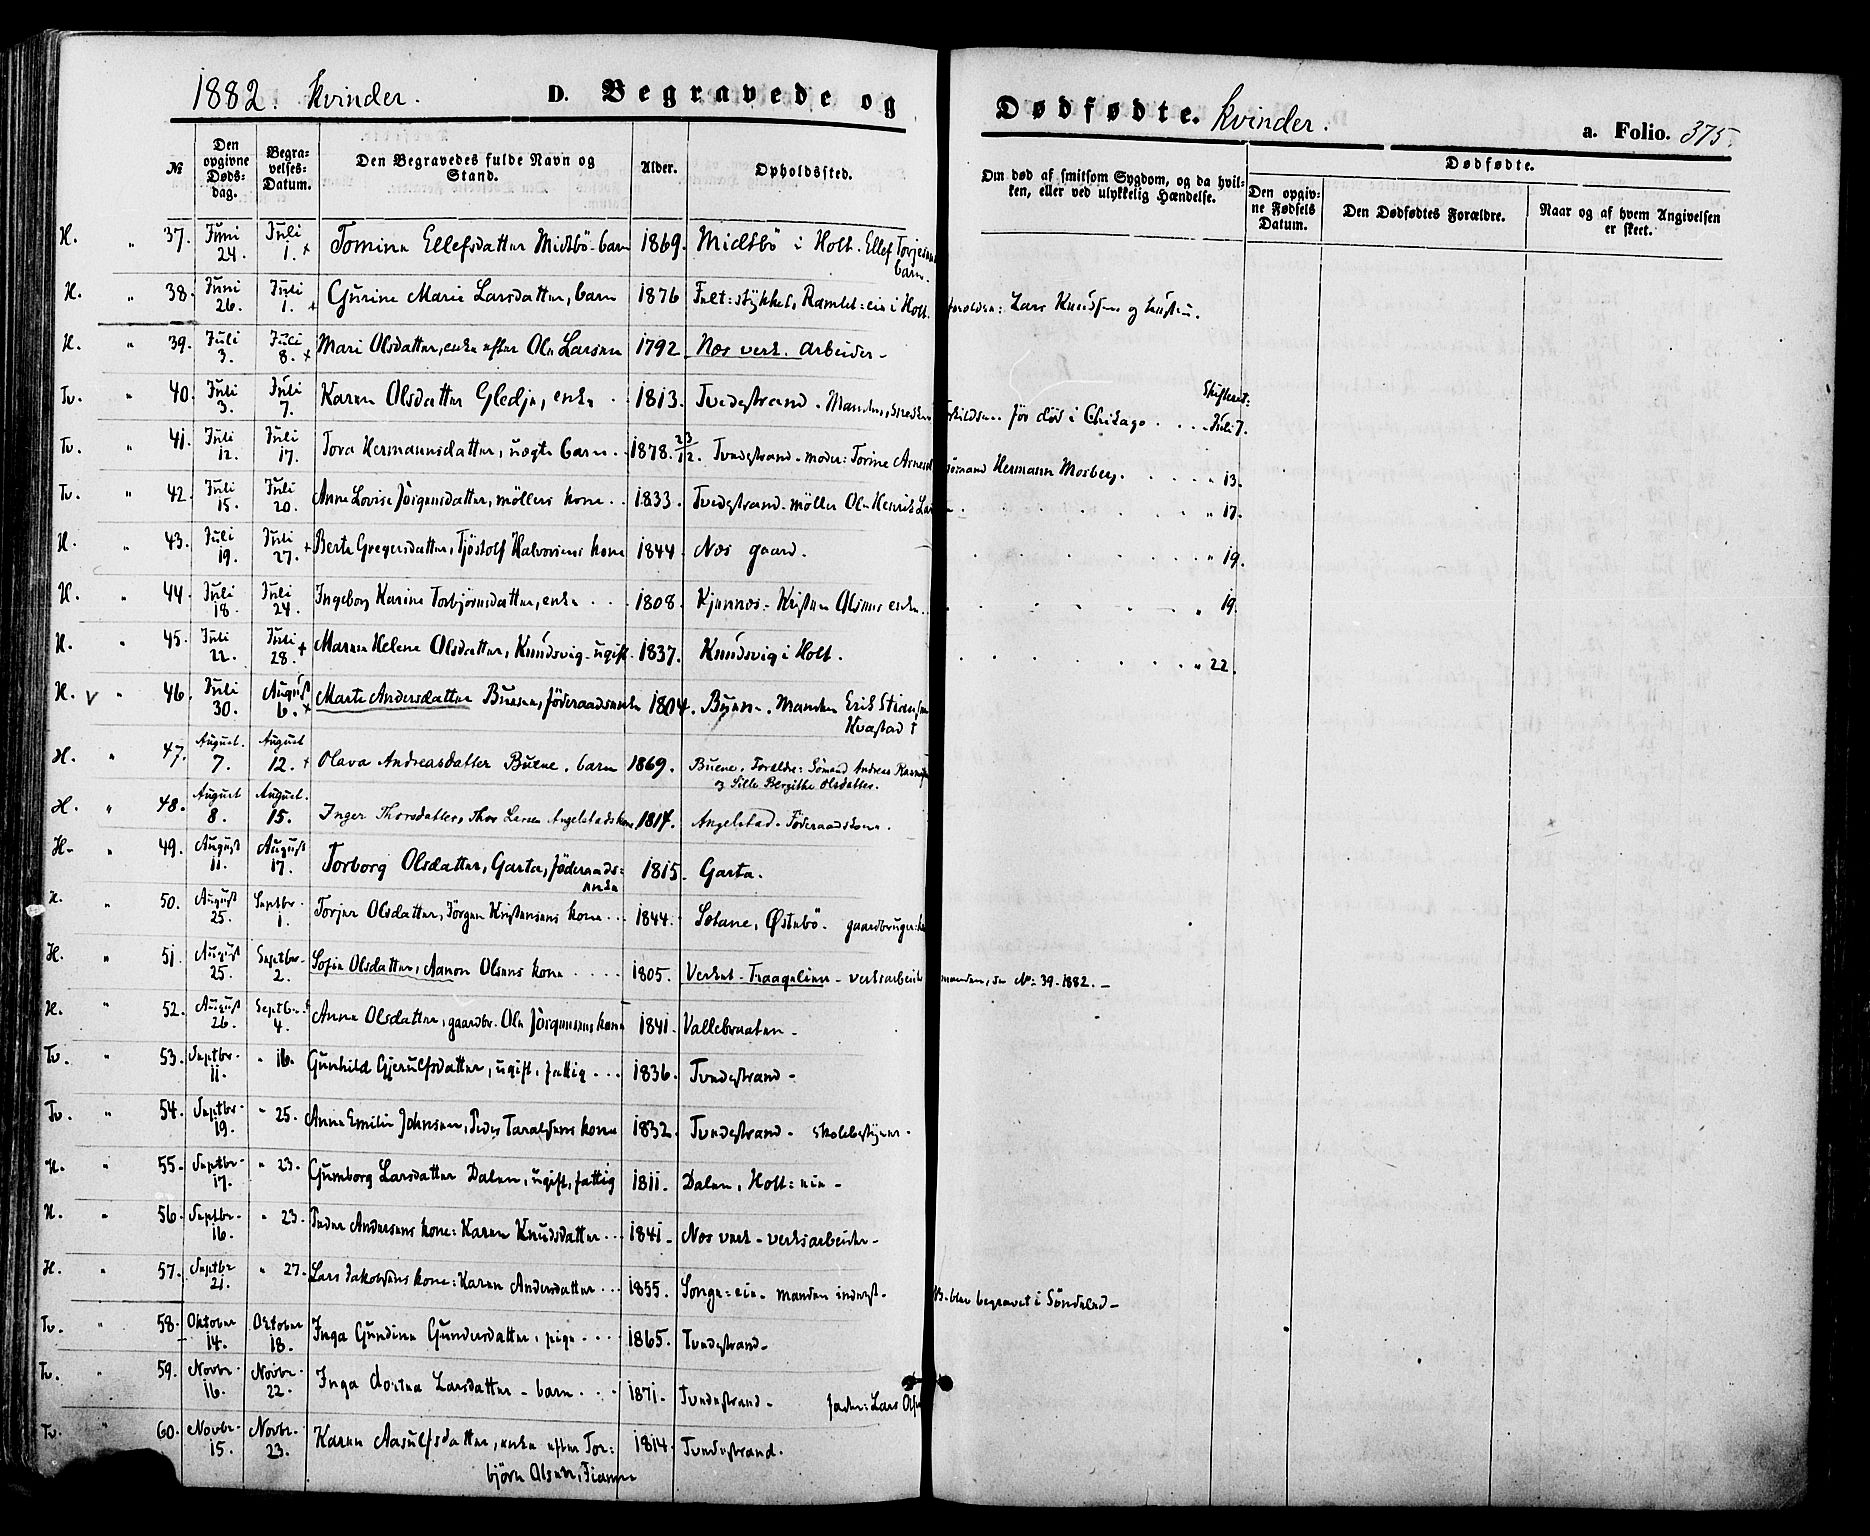 1882. Kvinder. D. Begravede og Dødfødte. Kvinder. a. Folio. 375.
№ Den opgivne Døds-dag. Begra-velses-Datum. Den Begravedes fulde Navn og Stand. Alder. Opholdssted. Om død af smitsom Sygdom, og da hvil-ken, eller ved ulykkelig Hændelse. Dødfødte.
Den opgiv-ne Fødsels Datum. Den Dødfødtes Forældre. Naar og af hvem Angivelsen er skeet.
H. " 37. Juni 24. Juli 1. + Tomine Ellefsdatter Midtbö - barn 1869. Midtbö i Holt. Ellef Torjesens barn.
H. " 38. Juni 26. Juli 1. + Gurine Marie Larsdatter, barn 1876 Holt. Lars Knudsen og hustru.
H. " 39. Juli 3. Juli 8. + Mari Olsdatter, enke efter Ole Larsen 1792 Næs verk. Arbeider -
Tv. " 40. Juli 3. Juli 7. Karen Olsdatter Gledje, enke . 1813. Tvedestrand. Manden, før død i Chikago . . . Juli 7.
Tv. " 41. Juli 12. Juli 17. Tora Hermannsdatter, uægte barn . 1878. 23/12. Tvedestrand - moder: Torine Hermann Mosberg. . . . . 13.
Tv. " 42. Juli 15. Juli 20. Anne Lovise Jörgensdatter, möllers kone . . 1833. Tvedestrand - möller Ole Henrik . . . . " 17.
H. " 43. Juli 19. Juli 27. + Berte Gregersdatter, Tjöstolf Halvorsens kone 1844. Næs gaard. . . . . " 19.
H. " 44. Juli 18. Juli 24. Ingeborg Karine Torbjörnsdatter, enke . . . 1808. Kjennes - Kristen Olsens enke. . . . . " 19.
H. " 45. Juli 22. Juli 28. + Maren Helene Olsdatter, Knudsvig - ugift. 1837. Knudsvig i Holt. . . . . " 22.
H. V " 46. Juli 30. August 6. + Marte Andersdatter Buene, föderaadsenke 1804. Manden Erik
Kvastad †
H. " 47. August. 7. August 12. + Olava Andreasdatter Buene. barn 1869. Buene. Forældre: Sömand Andreas
og Sille Bergithe Olsdatter.
H. " 48. August 8. August. 15. Inger Thorsdatter, Thor Larsen Angelstads kone 1817. Angelstad. Föderaadskone.
H. " 49. August 11. August 17. Torborg Olsdatter, Garta, föderaads-enke 1815. Garta.
H. " 50. August 25. Septbr. 1. Torjer Olsdatter, Jörgen Kristensens kone . . . 1844. Østebö. gaardbruger
H. " 51. August 25. Septbr. 2. Sofie Olsdatter, Aanon Olsens kone . . . . . 1805. Verket - verksarbeider manden, se No: 39 - 1882. -
H. " 52. August 26. Septbr. 4. Anne Olsdatter, gaardbr. Ole Jörgensens kone 1841. Vallebraaten -
Tv. " 53. Septbr. 11. " 16. Gunhild Gjerulfsdatter, ugift, fattig . . . 1836. Tvedestrand -
Tv. " 54. Septbr. 19. " 25. Anne Emilie Johnsen, Peder Taraldsens kone 1832. Tvedestrand - skolebestyrer -
H. " 55. Septbr. 17. " 23. Gunborg Larsdatter Dalen, ugift, fattig 1811. Dalen, Holt: eie -
H. " 56. Septbr. 16. " 23. Peder Andersens kone: Karen Knudsdatter . . . 1841 - Næs verk - verksarbeider -
H. " 57. Septbr. 21. " 27. Lars Jakobsens kone: Karen Andersdatter . . . 1855. Songe: eie - manden inderst - blev begravet i Söndeled -
Tv. " 58. Oktober 14. Oktober 18. Inga Gundine Gundersdatter, pige . . . . 1865. Tvedestrand -
Tv. " 59. Novbr. 16. Novbr. 22. Inga Dortea Larsdatter - barn . . . 1871 - Tvedestrand - fader: Lars Olsen
Tv. " 60. Novbr. 15. Novbr. 23. Karen Aasulfsdatter, enke efter Tor: 1814. Tvedestrand.
björn Olsen, Fianne